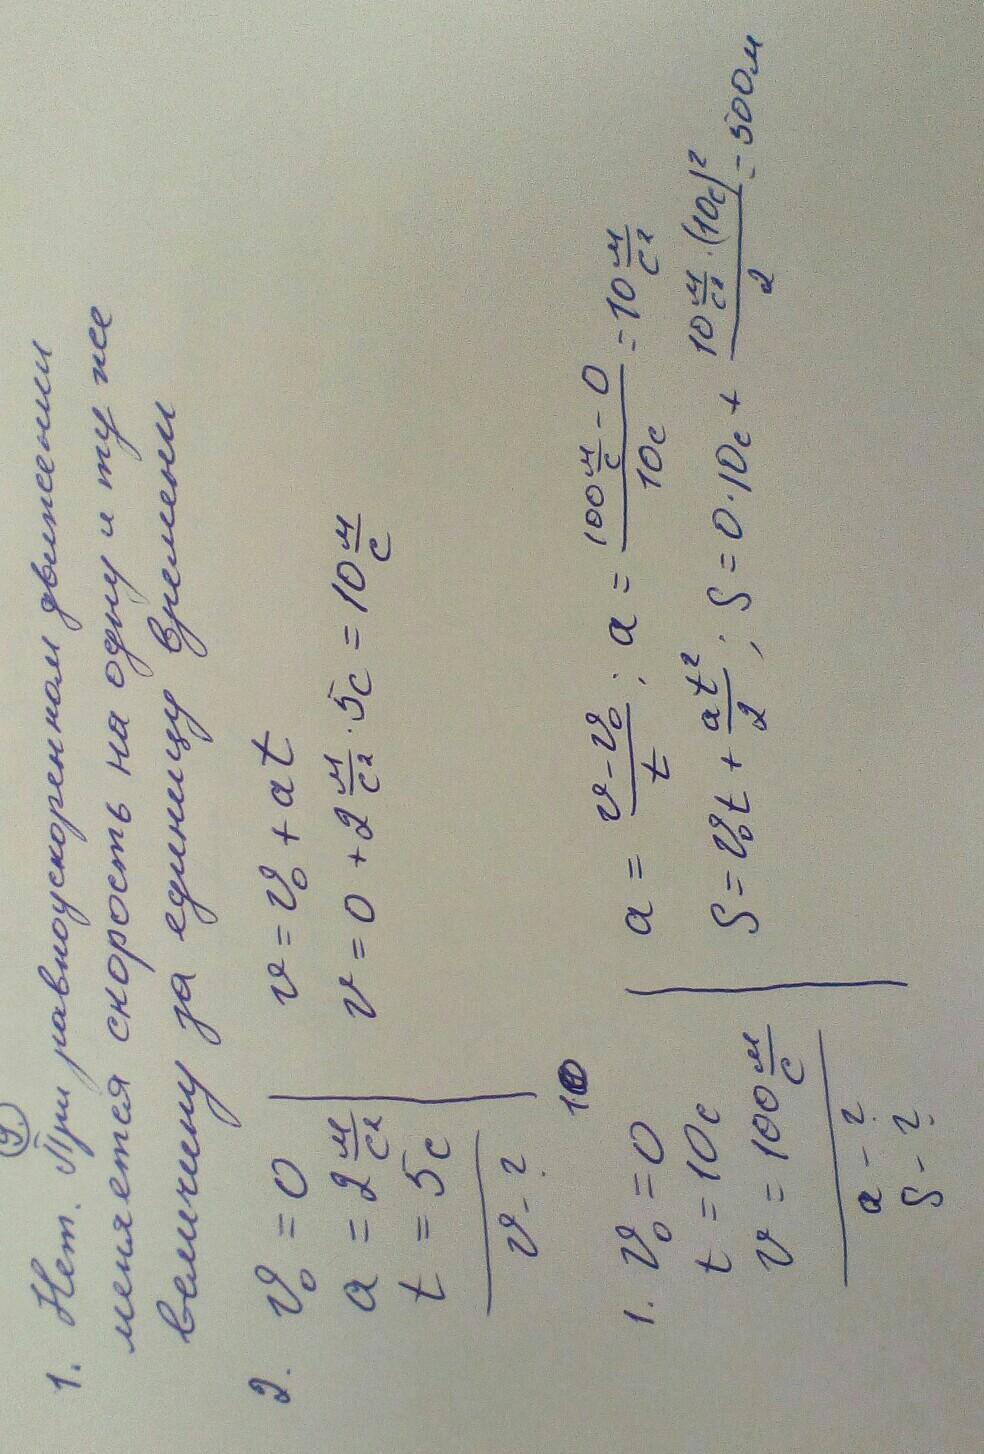 9.
1. Нет. При равноускоренном движении
меняется скорость на одну и ту же
величину за единицу времени
2. v₀ = 0
a = 2 м/с²
t = 5с
v - ?
v = v₀ + at
v = 0 + 2 м/с² · 5с = 10 м/с
10
1. v₀ = 0
t = 10с
v = 100 м/с
a - ?
S - ?
a = (v - v₀)/t ; a = (100 м/с - 0)/10с = 10 м/с²
S = v₀t + at²/2 ; S = 0·10с + (10 м/с² · (10с)²)/2 = 500м